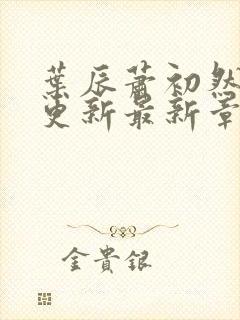 葉辰蕭初然
更新最新章
金貴銀